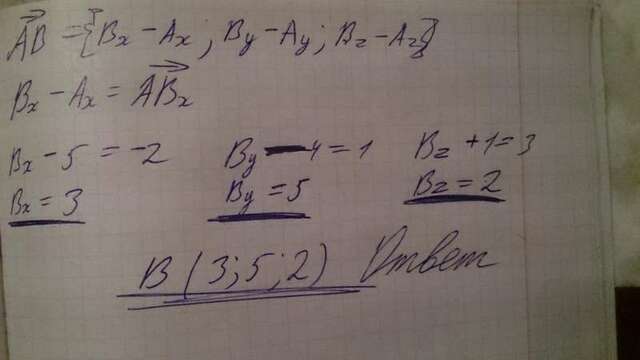 AB = {Bx - Ax ; By - Ay ; Bz - Az}
Bx - Ax = ABx
Bx - 5 = -2 By - 4 = 1 Bz + 1 = 3
Bx = 3 By = 5 Bz = 2
B (3; 5; 2) Ответ